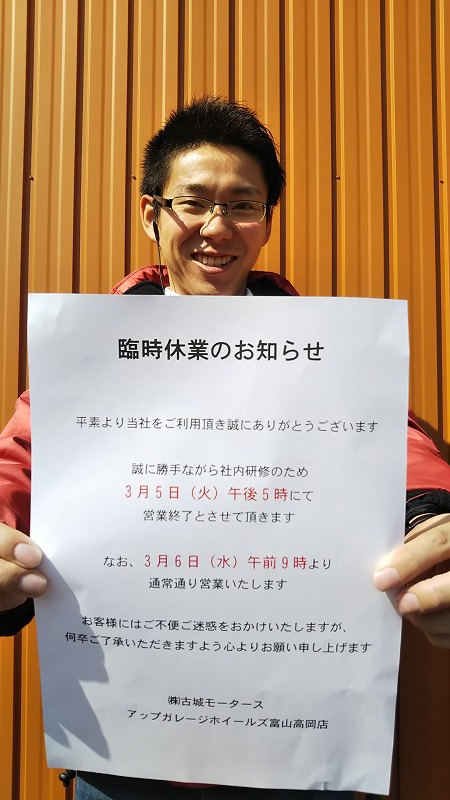 臨時休業のお知らせ
平素より当社をご利用頂き誠にありがとうございます
誠に勝手ながら社内研修のため
3月5日（火）午後5時にて
営業終了とさせて頂きます
なお、3月6日（水）午前9時より
通常通り営業いたします
お客様にはご不便ご迷惑をおかけいたしますが、
何卒ご了承いただきますよう心よりお願い申し上げます
㈱古城モータース
アップガレージホイールズ富山高岡店